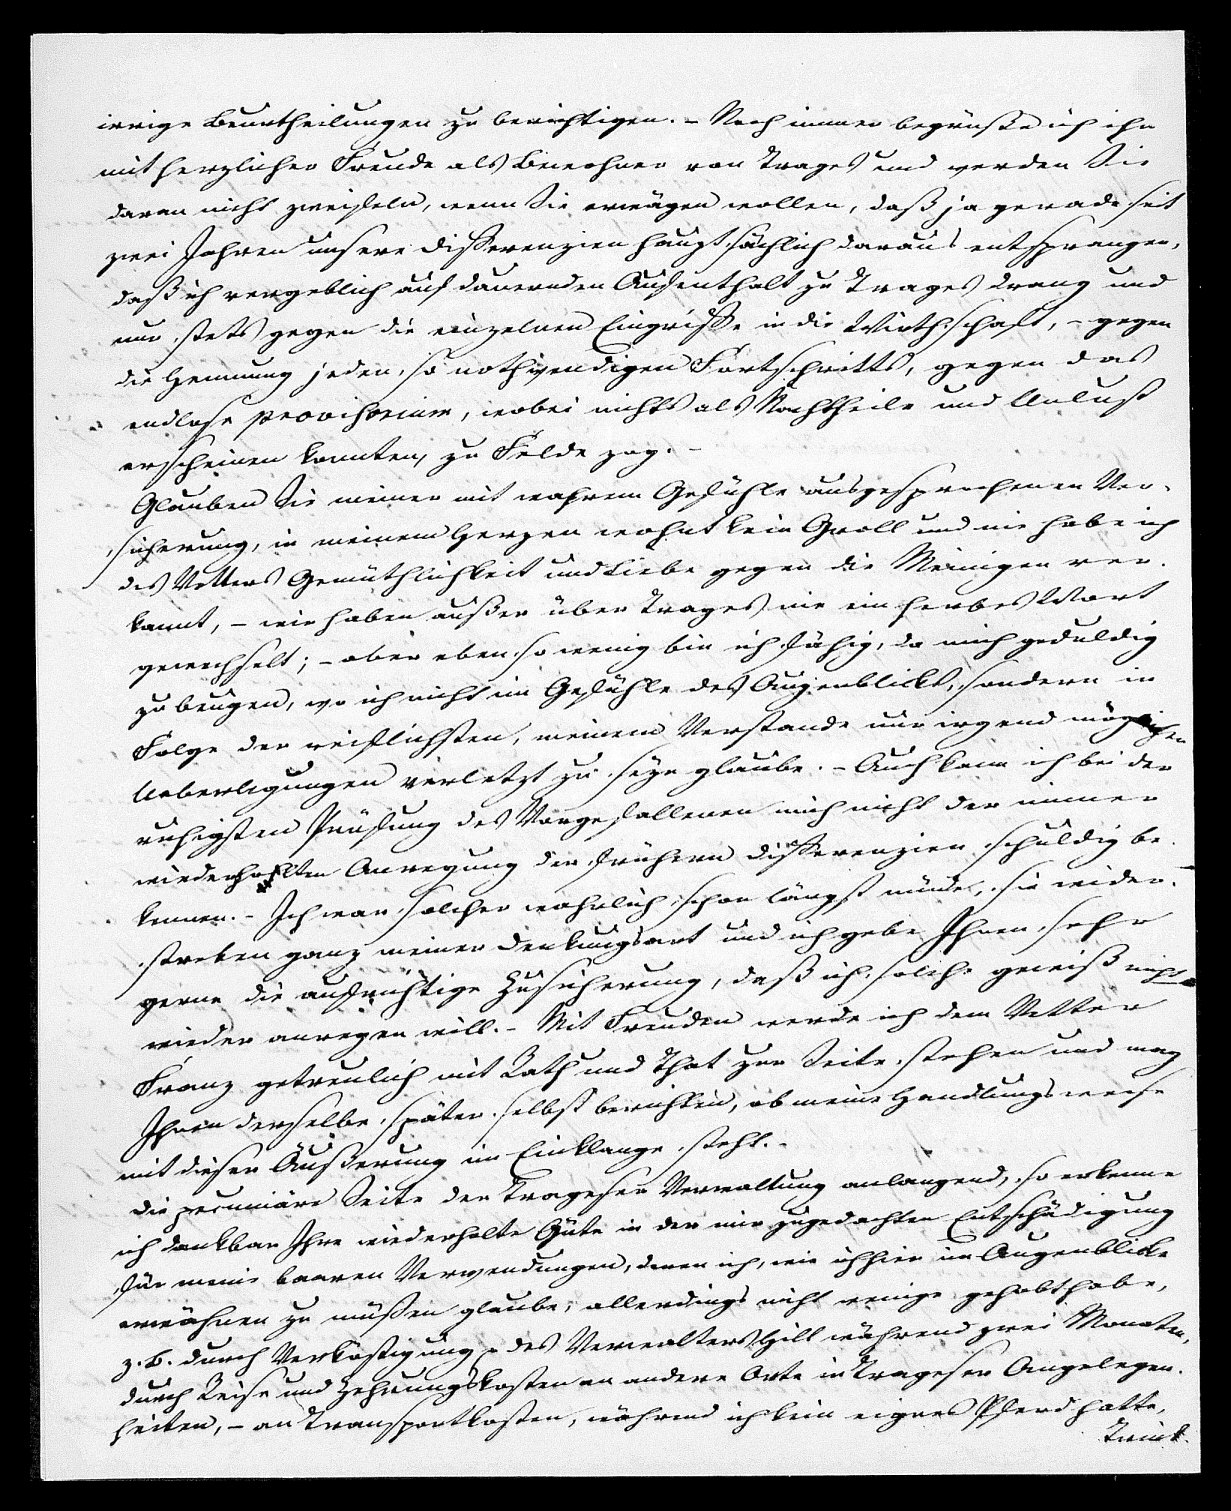 irrige Beurtheilungen zu berichtigen. – Noch immer begrüße ich ihn
mit herzlicher Freude als Bewohner von Trages und werden Sie
daran nicht zweifeln, wenn Sie erwägen wollen, daß ja gerade seit
zwei Jahren unsere Differenzien hauptsächlich daraus entsprangen,
daß ich vergeblich auf dauernden Aufenthalt zu Trages drang und
nur stets gegen die einzelnen Eingriffe in die Wirthschaft, – gegen
die Hemmung jeden so nothwendigen Fortschritts, gegen das
endlose provisorium, wobei nichts als Nachtheile und Unlust
erscheinen konnten, zu Felde zog. –
Glauben Sie meiner mit wahrem Gefühle ausgesprochenen Ver-
sicherung, in meinem Herzen wohnt kein Groll und nie habe ich
des Vetters Gemüthlichkeit und Liebe gegen die Meinigen ver-
kannt, – wir haben außer über Trages nie ein herbes Wort
gewechselt; – aber eben so wenig bin ich fähig, da mich geduldig
zu beugen, wo ich nicht im Gefühle des Augenblicks, sondern in
Folge der reiflichsten, meinem Verstande nur irgend möglichen
Ueberlegungen verletzt zu seyn glaube. – Auch kann ich bei der
ruhigsten Prüfung des Vorgefallenen mich nicht der immer
wiederholten Anregung der frühern Differenzien schuldig be-
kennen. – Ich war solcher wahrlich schon längst müde, sie wider-
streben ganz meiner Denkungsart und ich gebe Ihnen sehr
gerne die aufrichtige Zusicherung, daß ich solche gewiß nicht
wieder anregen will. – Mit Freuden werde ich dem Vetter
Franz getreulich mit Rath und That zur Seite stehen und mag
Ihnen derselbe später selbst berichten, ob meine Handlungsweise
mit dieser Äußerung im Einklange steht. –
Die pecuniäre Seite der Trageser Verwaltung anlangend, so erkenne
ich dankbar Ihre wiederholte Güte in der mir zugedachten Entschädigung
für meine baaren Verwendungen, deren ich, wie ich hier im Augenblicke
erwähnen zu müßen glaube, allerdings nicht wenige gehabt habe,
z. B. durch Verköstigung des Verwalters Hill während zwei Monaten,
durch Reise und Zehrungskosten an andere Orte in Trageser Angelegen-
heiten, – an Transportkosten, während ich kein eignes Pferd hatte,
Trink-